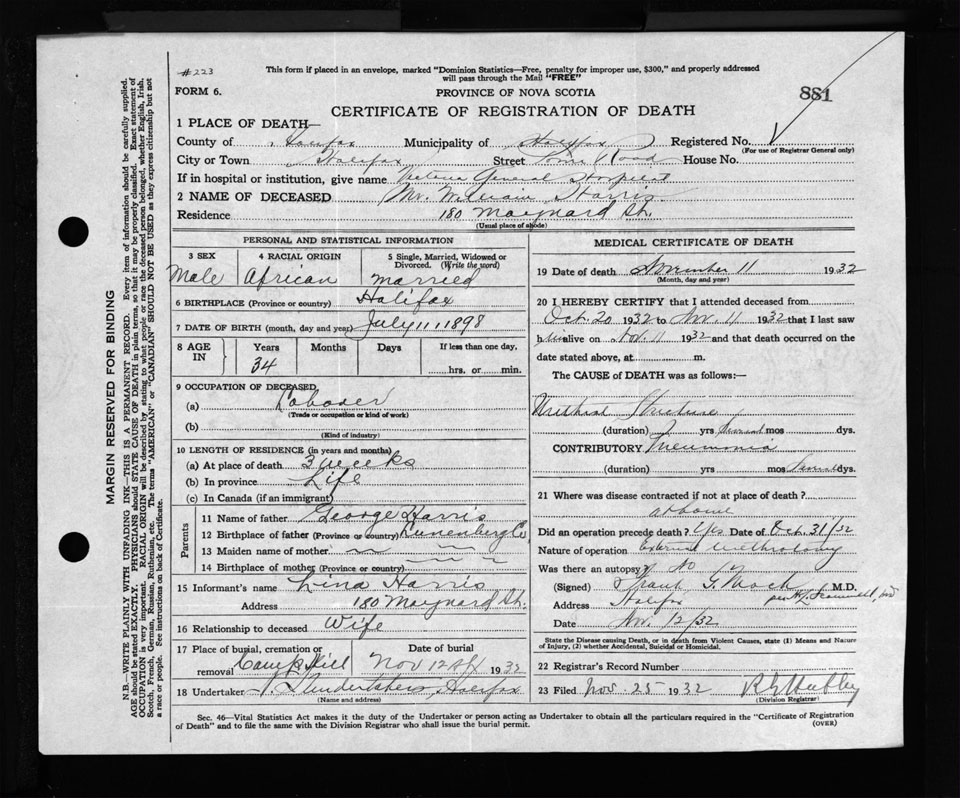 #223
This form if placed in an envelope, marked "Dominion Statistics—Free, penalty for improper use, $300," and properly addressed
will pass through the Mail "FREE"
FORM 6.
PROVINCE OF NOVA SCOTIA
881
CERTIFICATE OF REGISTRATION OF DEATH
1 PLACE OF DEATH—
County of Halifax Municipality of Halifax Registered No.
(For use of Registrar General only)
City or Town Halifax Street Road House No.
If in hospital or institution, give name Victoria General Hospital
2 NAME OF DECEASED Mr. William Harris
Residence 180 Maynard St.
(Usual place of abode)
PERSONAL AND STATISTICAL INFORMATION
3 SEX 4 RACIAL ORIGIN 5 Single, Married, Widowed or Divorced. (Write the word)
Male African Married
6 BIRTHPLACE (Province or country) Halifax
7 DATE OF BIRTH (month, day and year) July 11 1898
8 AGE IN Years Months Days If less than one day,
34 hrs. or min.
9 OCCUPATION OF DECEASED
(a) Laborer
(Trade or occupation or kind of work)
(b)
(Kind of industry)
10 LENGTH OF RESIDENCE (in years and months)
(a) At place of death 3 weeks
(b) In province Life
(c) In Canada (if an immigrant)
Parents
11 Name of father George Harris
12 Birthplace of father (Province or country) Lunenburg Co
13 Maiden name of mother
14 Birthplace of mother (Province or country)
15 Informant's name Lina Harris
Address 180 Maynard St.
16 Relationship to deceased Wife
17 Place of burial, cremation or removal Camp Hill Date of burial Nov 12 1932
18 Undertaker Undertakers Halifax
(Name and address)
MEDICAL CERTIFICATE OF DEATH
19 Date of death November 11 1932
(Month, day and year)
20 I HEREBY CERTIFY that I attended deceased from
Oct. 20 1932 to Nov. 11 1932 that I last saw
him alive on Nov. 11 1932 and that death occurred on the
date stated above, at m.
The CAUSE of DEATH was as follows:—
Urethral Stricture
(duration) yrs several mos dys.
CONTRIBUTORY Pneumonia
(duration) yrs mos several dys.
21 Where was disease contracted if not at place of death?
at home
Did an operation precede death? Yes Date of Oct. 31/32
Nature of operation External urethrotomy
Was there an autopsy? No
(Signed) Frank G. Mack M.D.
Address Halifax per
Date Nov. 12/32
State the Disease causing Death, or in death from Violent Causes, state (1) Means and Nature
of Injury, (2) whether Accidental, Suicidal or Homicidal.
22 Registrar's Record Number
23 Filed Nov. 25 1932
(Division Registrar)
Sec. 46—Vital Statistics Act makes it the duty of the Undertaker or person acting as Undertaker to obtain all the particulars required in the "Certificate of Registration
of Death" and to file the same with the Division Registrar who shall issue the burial permit. (OVER)
MARGIN RESERVED FOR BINDING
N.B.—WRITE PLAINLY WITH UNFADING INK—THIS IS A PERMANENT RECORD. Every item of information should be carefully supplied.
AGE should be stated EXACTLY. PHYSICIANS should STATE CAUSE OF DEATH in plain terms, so that it may be properly classified. Exact statement of
OCCUPATION is very important. RACIAL ORIGIN will be described by stating to what people or race the deceased person belonged, whether English, Irish,
Scotch, French, German, Russian, Ruthenian, etc. The terms "AMERICAN" or "CANADIAN" SHOULD NOT BE USED as they express citizenship but not
a race or people. See instructions on back of Certificate.